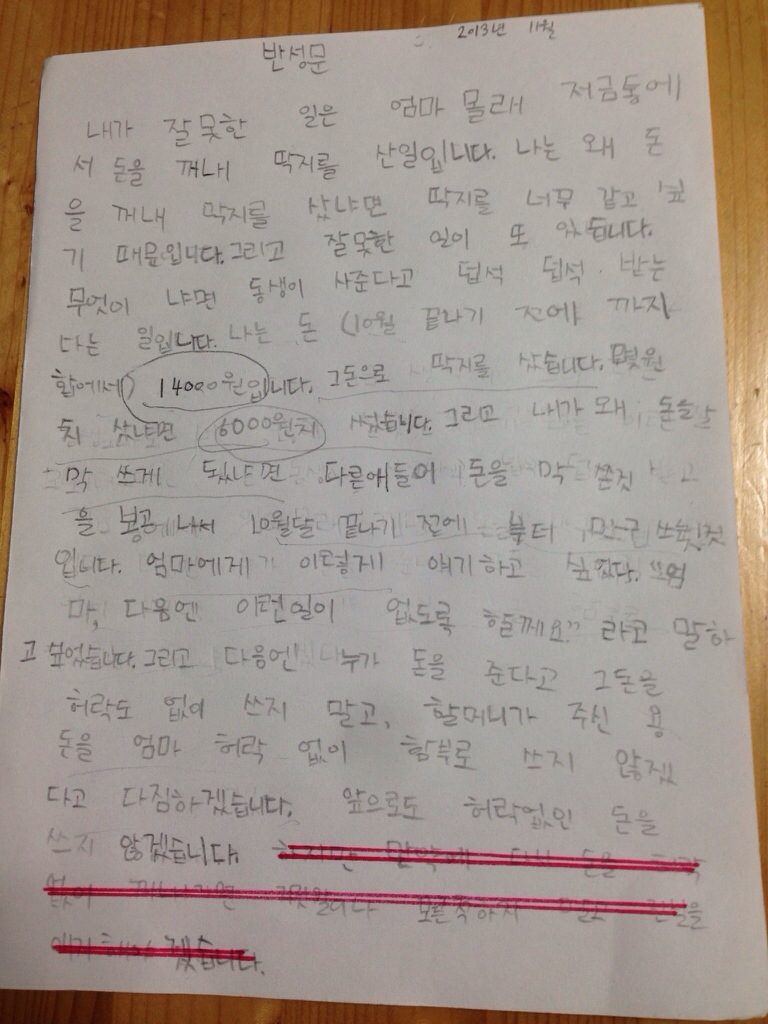 2013년 11월
반성문
내가 잘못한 일은 엄마 몰래 저금통에
서 돈을 꺼내 딱지를 산일입니다. 나는 왜 돈
을 꺼내 딱지를 샀냐면 딱지를 너무 갖고 싶
기 때문입니다. 그리고 잘못한 일이 또 있습니다.
무엇이 냐면 동생이 사준다고 덥석 덥석 받는
다는 일입니다. 나는 돈 (10월 끝나기 전에 까지
합에서) 14000원입니다. 그돈으로 딱지를 샀습니다. 몇원
치 샀냐면 6000원치 썼습니다. 그리고 내가 왜 돈을
막 쓰게 됬냐면 다른애들이 돈을 막 쓴것
을 보고 나서 10월달 끝나기 전에 부터 막
입니다. 엄마에게 이렇게 얘기하고 싶었다. "엄
마, 다음엔 이런일이 없도록 할께요." 라고 말하
고 싶었습니다. 그리고 다음엔 누가 돈을 준다고 그돈을
허락도 없이 쓰지 말고, 할머니가 주신 용
돈을 엄마 허락 없이 함부로 쓰지 않겠
다고 다짐하겠습니다. 앞으로도 허락없인 돈을
쓰지 않겠습니다. 하지만 만약에 돈을 허락
없이
겠습니다.